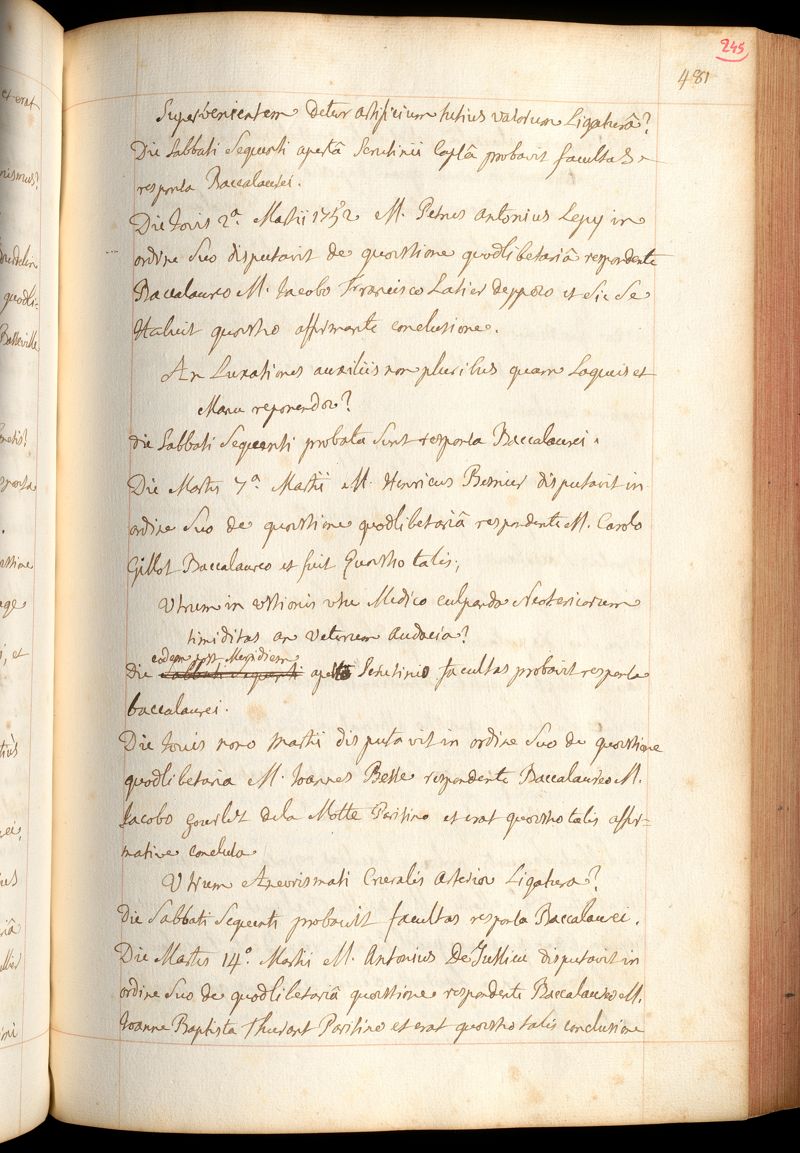 245
481
Supervenientem detur artificium tutius vasorum Ligaturâ?
Die Sabbati Sequenti apertâ Scrutinii Capsâ probavit facultas
responsa Baccalaurei.
Die Iovis 2ª. Martii 1752 M. Petrus Antonius Lepy in
ordine Suo disputavit de quœstione quodlibetariâ respondente
Baccalaureo M. Iacobo Francisco Latier et Sic Se
Habuit quœstio affirmante conclusione.
An Luxationes auxiliis non pluribus quam Laqueis et
Manu reponendœ?
die Sabbati Sequenti probata Sunt responsa Baccalaurei.
Die Martis 7ª. Martii M. Henricus Besnier disputavit in
ordine Suo de quœstione quodlibetariâ respondente M. Carolo
Gillot Baccalaureo et fuit Quœstio talis;
Utrum in ustionis usu Medico culpanda Neotericorum
timiditas an Veterum Audacia?
eodem post Meridiem
Die Sabbati Sequenti aperto Scrutinio facultas probavit responsa
baccalaurei.
Die Iovis nono martii disputavit in ordine Suo de quœstione
quodlibetaria M. Ioannes Besse respondente Baccalaureo M.
Jacobo Gourlez dela Motte Parisino et erat quœstio talis affir=
mative conclusa
Utrum Anevrismati Cruralis Arteriœ Ligatura?
die Sabbati Sequenti probavit facultas responsa Baccalaurei.
Die Martis 14º. Martii M. Antonius De Jussieu disputavit in
ordine Suo de quodlibetariâ quœstione respondente Baccalaureo M.
Ioanne Baptista Thurant Parisino et erat quœstio talis conclusione